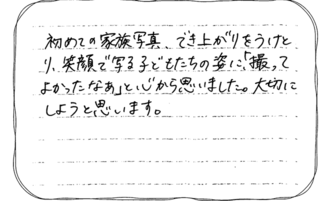 初めての家族写真、でき上がりをうけと
り、笑顔で写る子どもたちの姿に、「撮って
よかったなぁ」と心から思いました。大切に
しようと思います。